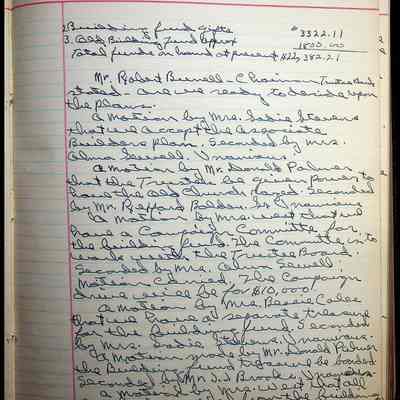 2. Building fund gifts $3322.11
3. Old Building Fund Approx 1800.00
Total funds on hand at present $22,382.21
Mr. Robert Bunnell - Chairman Trustee Board
stated - are we ready to decide upon
the plans.
A motion by Mrs. Sadie Stevens
that we accept the Associate
Builders plan. Seconded by Mrs.
Alma Sewell. Unanimous.
A motion by Mr. Donald Palmer
that the Trustees be given power to
have the Old Church razed. Seconded
by Mr. Bolden Unanimous
A motion by Mrs. West that we
have a Campaign Committee for
the building fund. The Committee is to
work with the Trustee Board.
Seconded by Mrs. Alma Sewell.
Motion Carried. The Campaign
drive will be for $10,000.
A motion by Mrs. Bessie
that we have a separate treasure
for the Building fund. Seconded
by Mrs. Sadie Stevens. Unanimous.
A motion made by Mr. Donald Palmer
the Building fund treasure be bonded
Seconded by Mr. J.J. Brooks. Unanimous
a motion by Mrs. West that all
the building